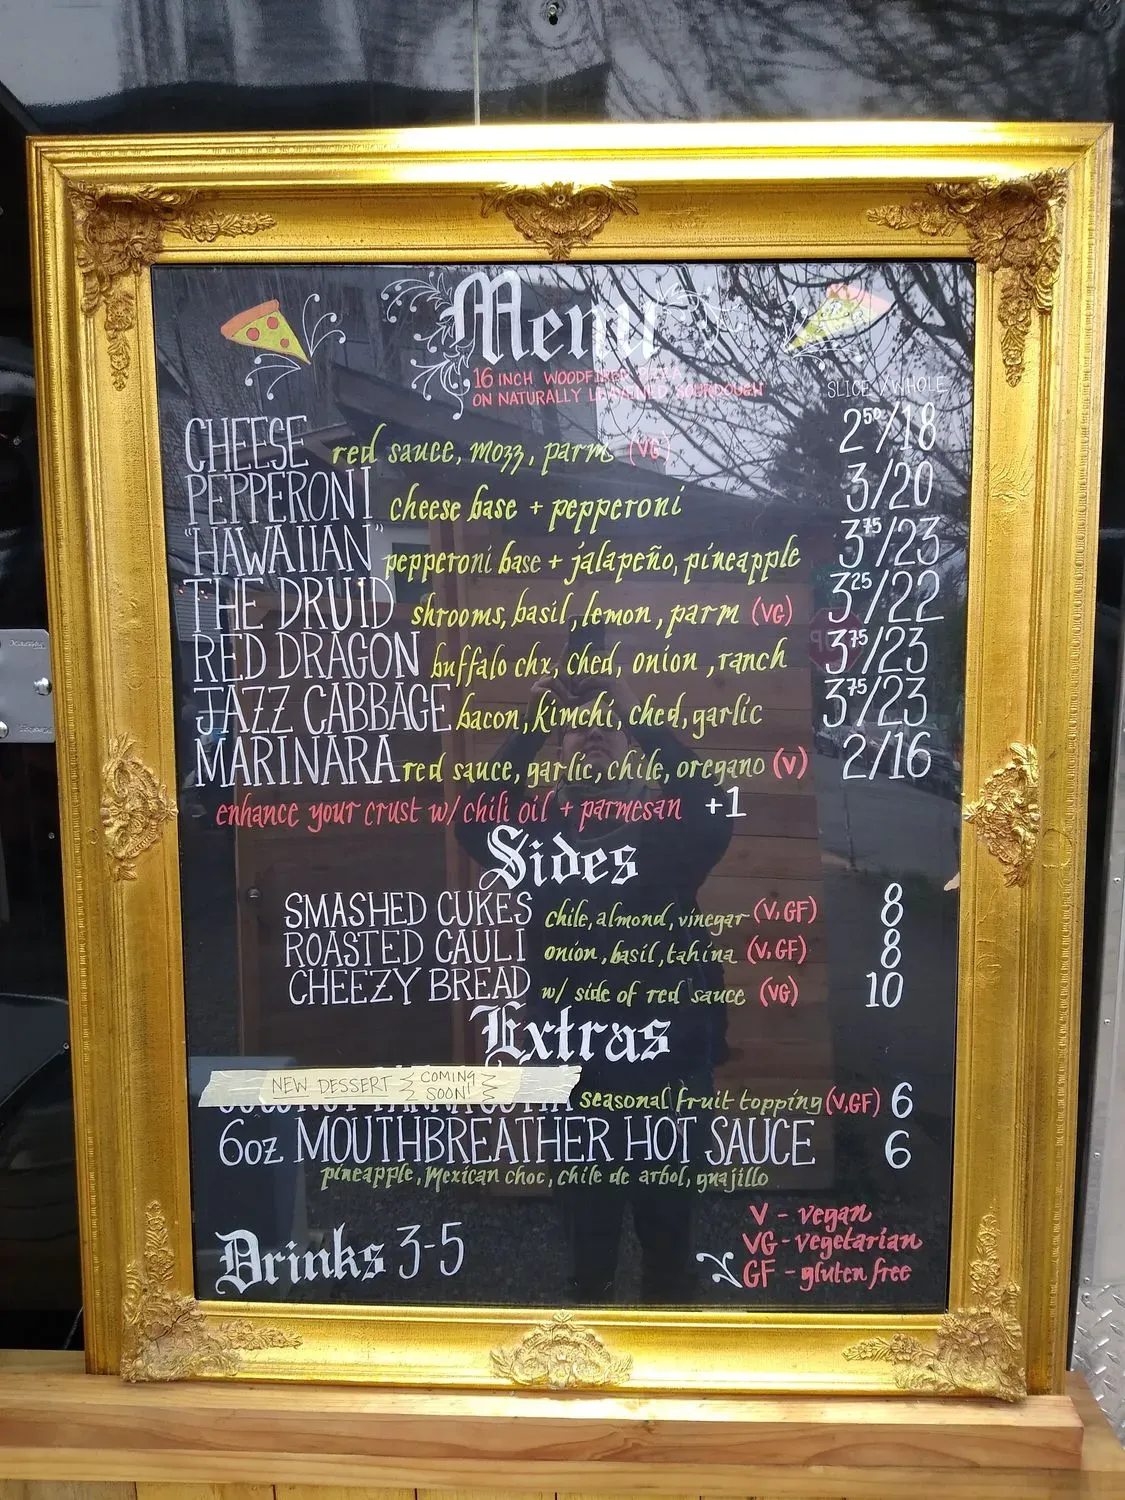 Menu
16 INCH WOODFIRED PIZZA
ON NATURALLY LEAVENED SOURDOUGH
SLICE / WHOLE
CHEESE red sauce, mozz, parm (VG) 2⁵⁰/18
PEPPERONI cheese base + pepperoni 3/20
"HAWAIIAN" pepperoni base + jalapeño, pineapple 3⁷⁵/23
THE DRUID shrooms, basil, lemon, parm (VG) 3²⁵/22
RED DRAGON buffalo chx, ched, onion, ranch 3⁷⁵/23
JAZZ CABBAGE bacon, kimchi, ched, garlic 3⁷⁵/23
MARINARA red sauce, garlic, chile, oregano (V) 2/16
enhance your crust w/ chili oil + parmesan +1
Sides
SMASHED CUKES chile, almond, vinegar (V, GF) 8
ROASTED CAULI onion, basil, tahina (V, GF) 8
CHEEZY BREAD w/ side of red sauce (VG) 10
Extras
NEW DESSERT COMING SOON!
seasonal fruit topping (V, GF) 6
6oz MOUTHBREATHER HOT SAUCE 6
pineapple, Mexican choc, chile de arbol, guajillo
Drinks 3-5
V - vegan
VG - vegetarian
GF - gluten free